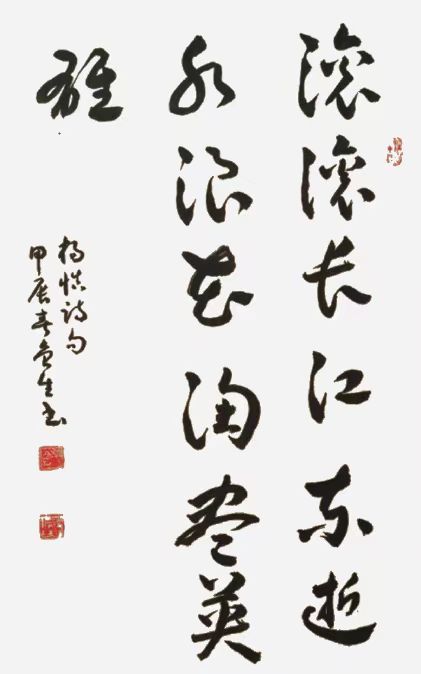 滚滚长江东逝
水浪花淘尽英
雄
杨慎诗句
甲辰春鱼生书